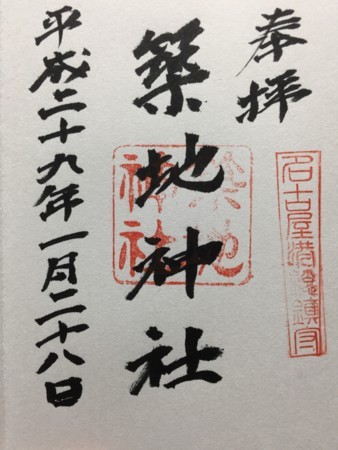 奉拝
名古屋港鎮守
築地神社
築地神社
平成二十九年一月二十八日